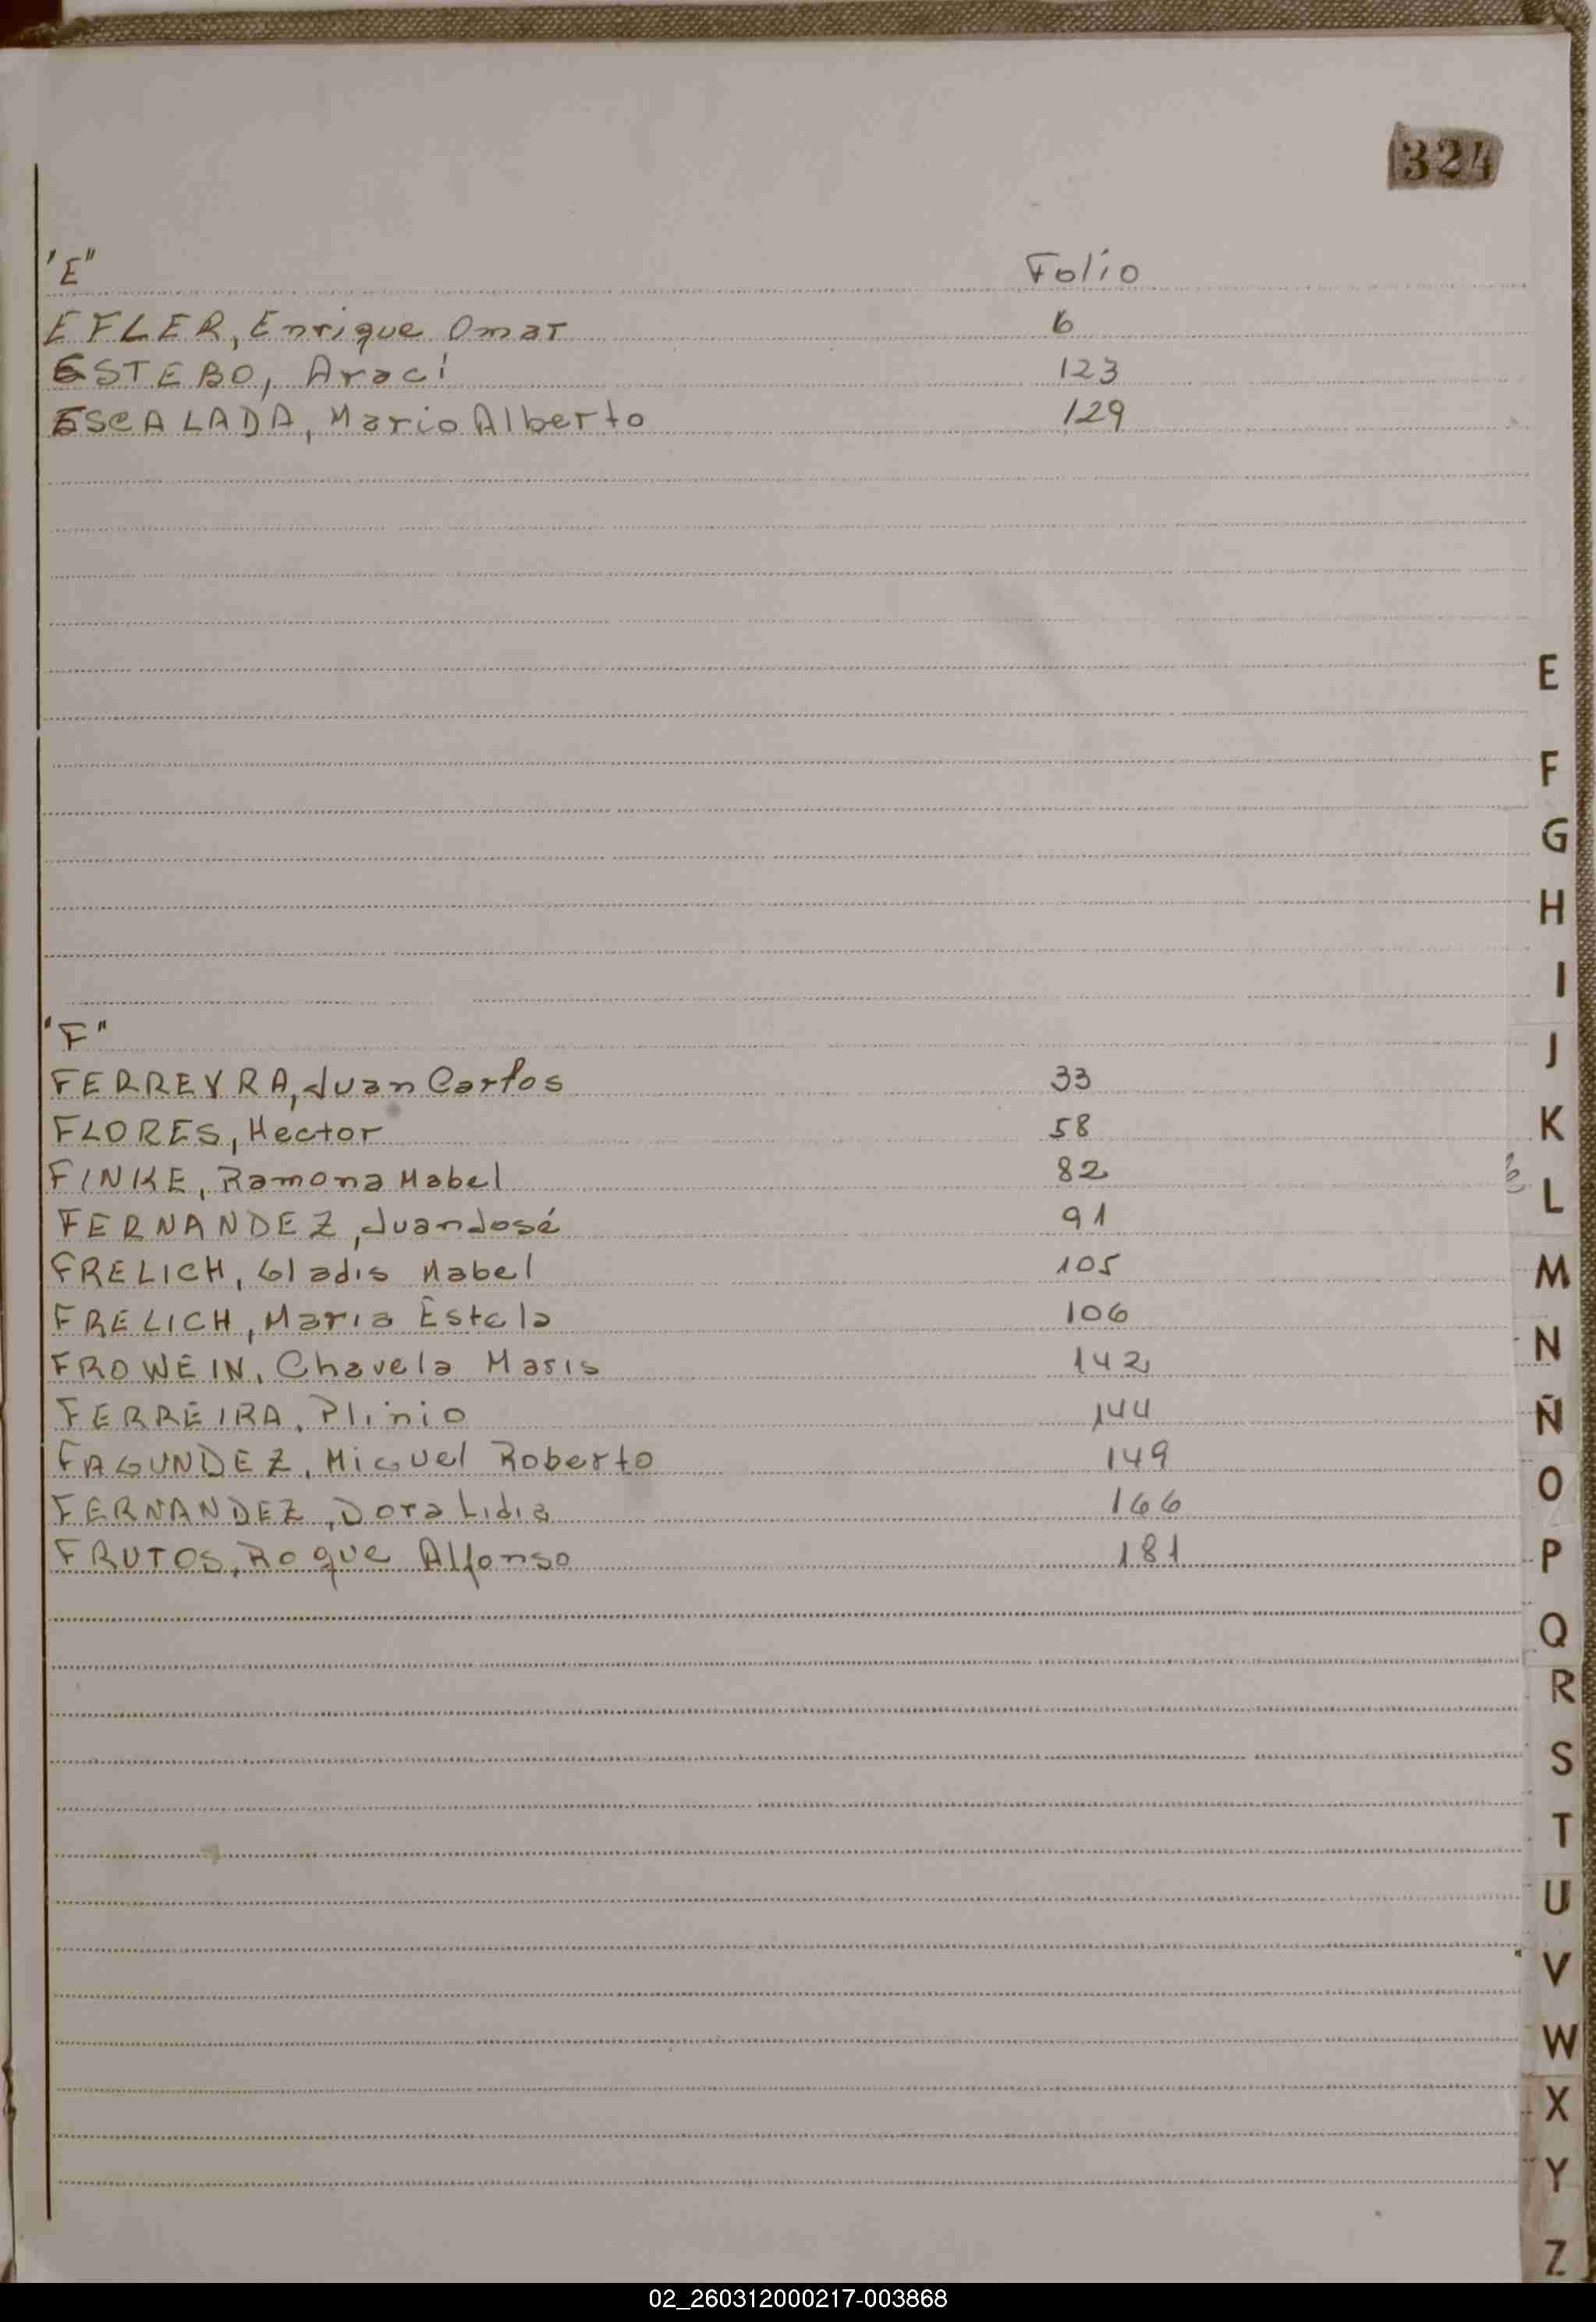 324
"E" Folio
EFLER, Enrique Omar 6
ESTEBO, Araci 123
ESCALADA, Mario Alberto 129
"F"
FERREYRA, Juan Carlos 33
FLORES, Hector 58
FINKE, Ramona Mabel 82
FERNANDEZ, Juan José 91
FRELICH, Gladis Mabel 105
FRELICH, Maria Estela 106
FROWEIN, Chavela Maris 142
FERREIRA, Plinio 144
FAGUNDEZ, Miguel Roberto 149
FERNANDEZ, Dora Lidia 166
FRUTOS, Roque Alfonso 181
E
F
G
H
I
J
K
L
M
N
Ñ
O
P
Q
R
S
T
U
V
W
X
Y
Z
02_260312000217-003868